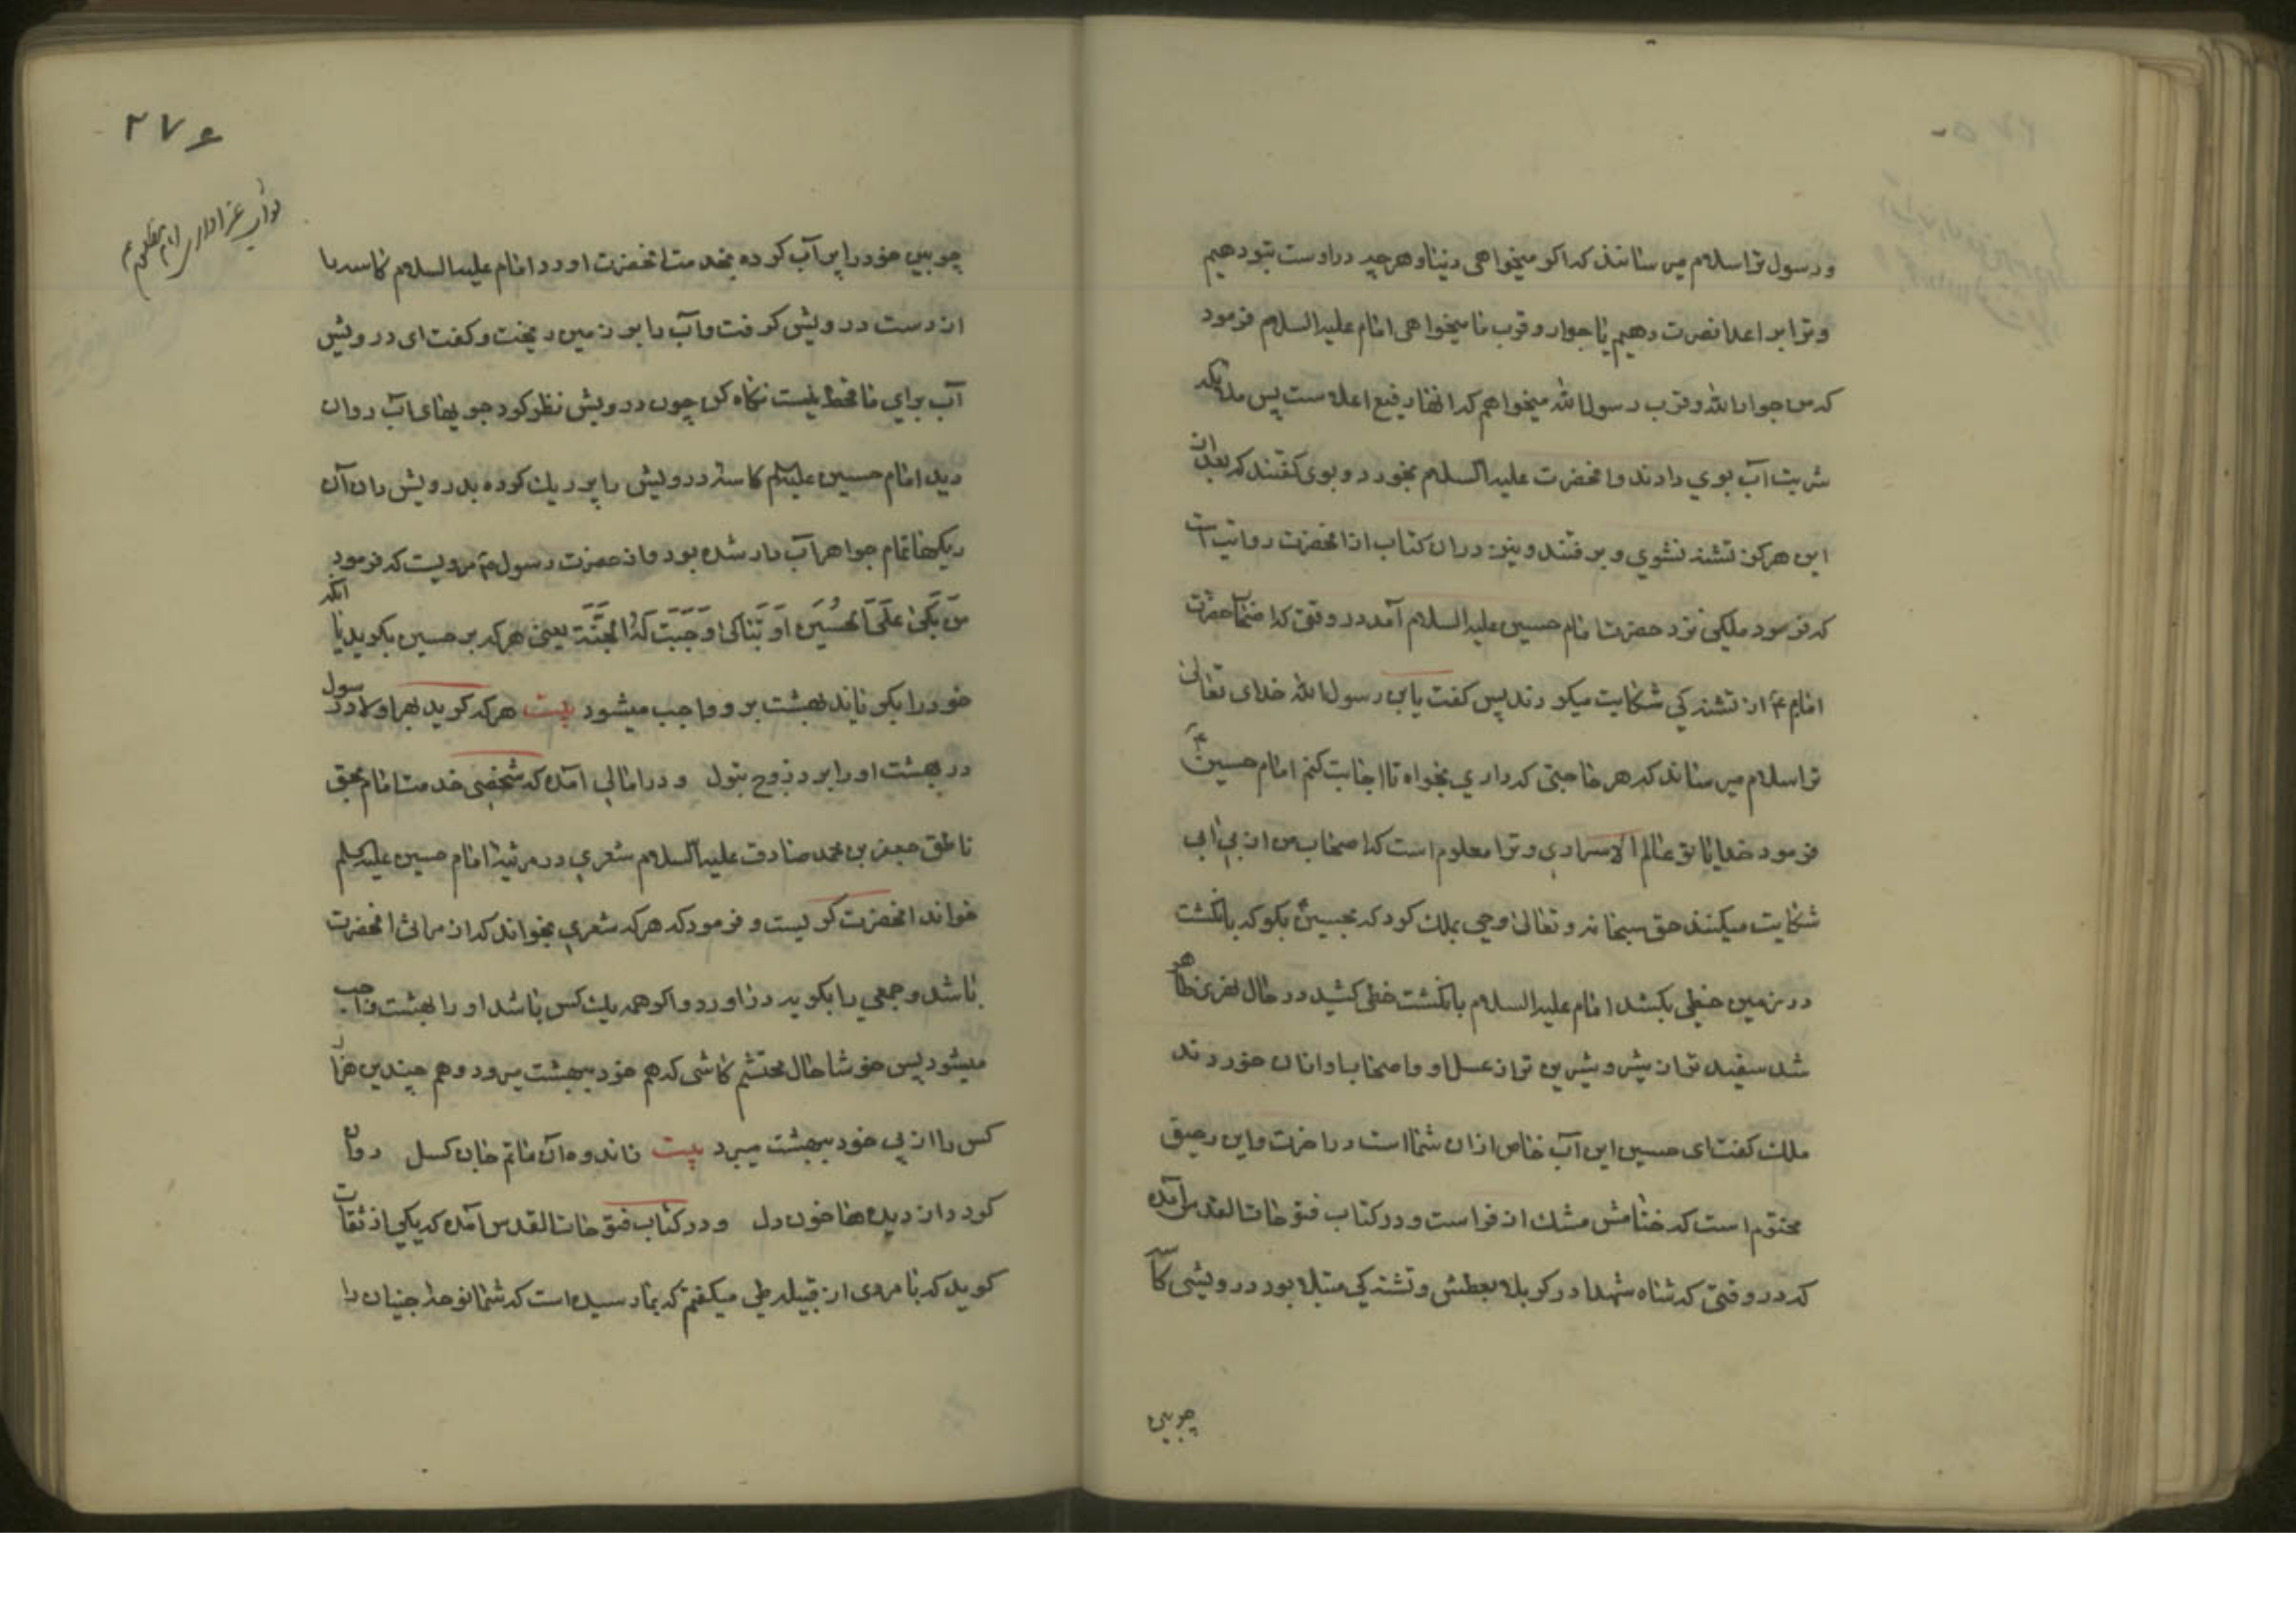 ورسول ترا سلام میرسانند که اگر میخواهی دنیا و هر چه در اوست بتو دهیم
و ترا بر اعدا نصرت دهیم یا جوار و قرب ما میخواهی امام علیه السلام فرمود
که من جوار الله و قرب رسول الله میخواهم که انها رفیع اعلاست پس ملایکه
شربت آب بوی دادند و انحضرت علیه السلام بخورد و بوی کفتند که بعد ازان
این هرکز تشنه نشوی و برفتند و نیز دران کتاب از انحضرت روایت است
که فرمود ملکی نزد حضرت امام حسین علیه السلام آمد در وقتی که اصحاب حضرت
امام ع از تشنه کی شکایت میکردند پس کفت یابن رسول الله خدای تعالی
ترا سلام میرساند که هر حاجتی که داری بخواه تا اجابت کنم امام حسین ع
فرمود خدایا تو عالم الاسراری و ترا معلوم است که اصحاب من از بی ابی
شکایت میکنند حق سبحانه و تعالی وحی بملک کرد که بحسین ع بکو که بانکشت
در زمین خطی بکشد امام علیه السلام بانکشت خطی کشید در حال نهری ظاهر
شد سفید تر از شیر و شیرین تر از عسل او و اصحاب او ازان خوردند
ملک کفت ای حسین این آب خاص ازان شما است در اخرت و این رحیق
مختوم است که ختامش مشک ازفر است و در کتاب فتوحات القدس آمده
که در وقتی که شاه شهدا در کربلا بعطش و تشنه کی مبتلا بود درویشی کاسه
چوبین
۲۷۶
ثواب عزاداری امام مظلوم ع
چوبین خود را پر آب کرده بخدمت انحضرت اورد امام علیه السلام کاسه را
از دست درویش کرفت و آب را بر زمین ریخت و کفت ای درویش
آب برای ما قحط نیست نکاه کن چون درویش نظر کرد جویهای آب روان
دید امام حسین علیه السلم کاسه درویش را پر ریک کرده بدرویش داد آن
ریکها تمام جواهر آب دار شده بود و از حضرت رسول ص مرویست که فرمود
مَن بَکیٰ عَلَی الحُسَین اَو تَباکیٰ وَجَبَت لَهُ الجَنَّة یعنی هر که بر حسین بکرید یا انکه
خود را بکریاند بهشت بر و واجب میشود بیت هر که کرید بهر اولاد رسول
در بهشت او را برد زوج بتول و در امالی آمده که شخصی خدمت امام بحق
ناطق جعفر بن محمد صادق علیه السلام شعری در مرثیه امام حسین علیه السلم
خواند انحضرت کریست و فرمود که هر که شعری بخواند که از مراثی انحضرت
باشد و جمعی را بکریه در اورد و اکر همه یک کس باشد او را بهشت واجب
میشود پس خوشا حال محتشم کاشی که هم خود ببهشت میرود و هم چندین هزار
کس را از پی خود ببهشت میبرد بیت ماند و آن ماتم جان کسل روان
کرد از دیده ها خون دل و در کتاب فتوحات القدس آمده که یکی از ثقات
کوید که با مردی از قبیله طی میکفتم که بما رسیده است که شما نوحه جنیان را